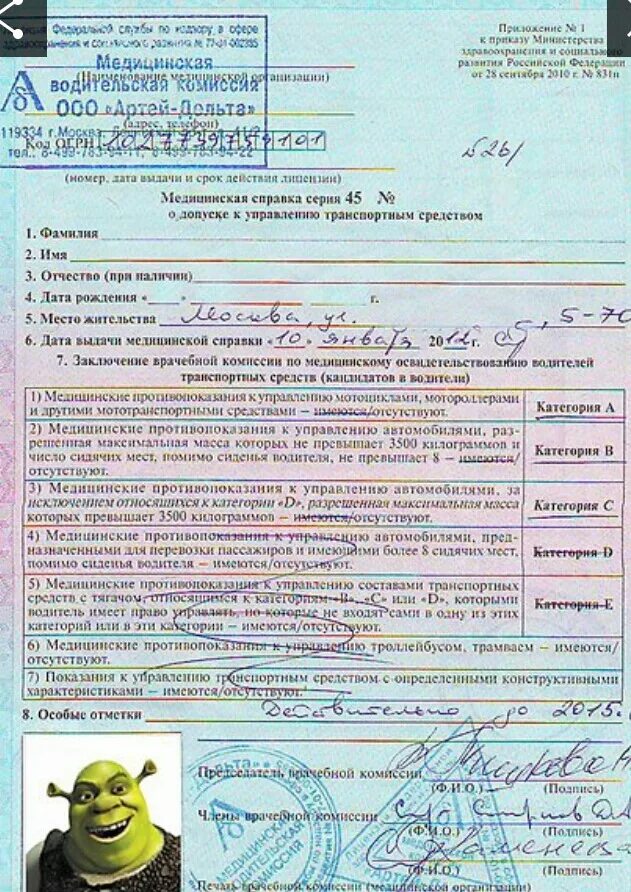 Федеральной службы по надзору в сфере
здравоохранения и социального развития № 77-01-002385
Медицинская
водительская комиссия
ООО «Артей-Дельта»
119334 г. Москва,
тел.: 8-499-783-94-11, 8-499-783-94-22
(Наименование медицинской организации)
(адрес, телефон)
Код ОГРН 1027739759101
(номер, дата выдачи и срок действия лицензии)
Приложение № 1
к приказу Министерства
здравоохранения и социального
развития Российской Федерации
от 28 сентября 2010 г. № 831н
Медицинская справка серия 45 №
о допуске к управлению транспортным средством
1. Фамилия
2. Имя
3. Отчество (при наличии)
4. Дата рождения « » г.
5. Место жительства Москва, ул. , 5-70
6. Дата выдачи медицинской справки «10» января 2012 г.
7. Заключение врачебной комиссии по медицинскому освидетельствованию водителей
транспортных средств (кандидатов в водители)
1) Медицинские противопоказания к управлению мотоциклами, мотороллерами
и другими мототранспортными средствами – имеются/отсутствуют.
Категория А
2) Медицинские противопоказания к управлению автомобилями, раз-
решенная максимальная масса которых не превышает 3500 килограммов и
число сидячих мест, помимо сиденья водителя, не превышает 8 – имеются/
отсутствуют.
Категория В
3) Медицинские противопоказания к управлению автомобилями, за
исключением относящихся к категории «D», разрешенная максимальная масса
которых превышает 3500 килограммов – имеются/отсутствуют.
Категория С
4) Медицинские противопоказания к управлению автомобилями, пред-
назначенными для перевозки пассажиров и имеющими более 8 сидячих мест,
помимо сиденья водителя – имеются/отсутствуют.
Категория D
5) Медицинские противопоказания к управлению составами транспортных
средств с тягачом, относящимся к категориям «В», «С» или «D», которыми
водитель имеет право управлять, но которые не входят сами в одну из этих
категорий или в эти категории – имеются/отсутствуют.
Категория Е
6) Медицинские противопоказания к управлению троллейбусом, трамваем – имеются/
отсутствуют.
7) Показания к управлению транспортным средством с определенными конструктивными
характеристиками – имеются/отсутствуют.¹
8. Особые отметки Действительно до 2015г.
Председатель врачебной комиссии
(Ф.И.О.) (Подпись)
Члены врачебной комиссии
(Ф.И.О.) (Подпись)
(Ф.И.О.) (Подпись)
Печать врачебной комиссии (медицинской организации)
МЕДИЦИНСКАЯ
ВОДИТЕЛЬСКАЯ
КОМИССИЯ